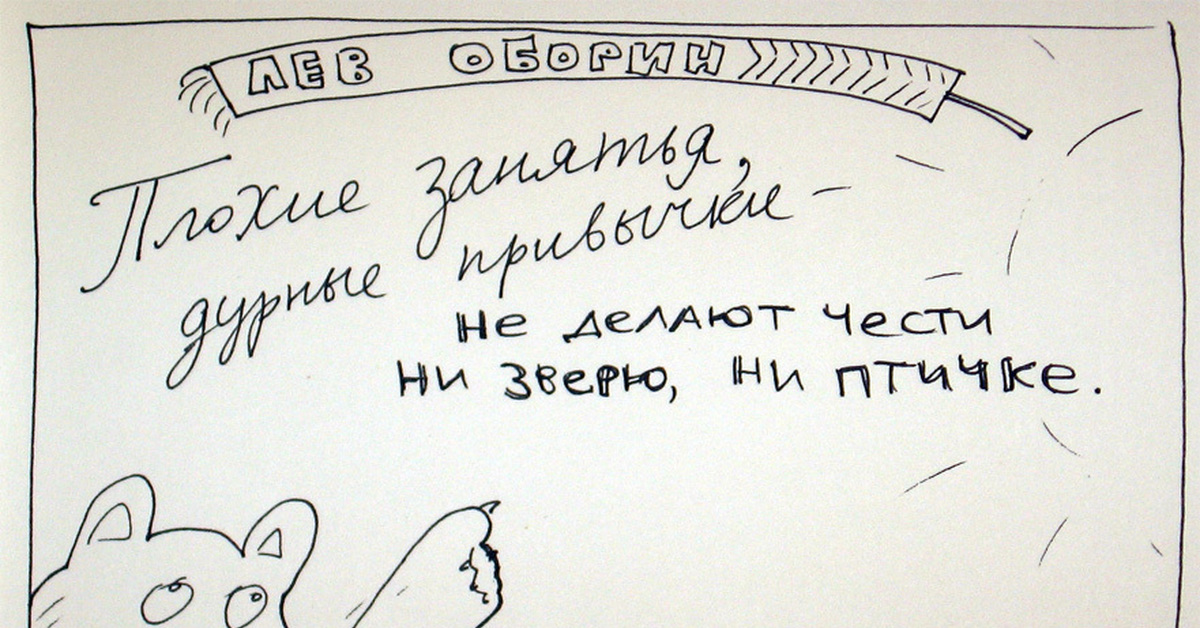 ЛЕВ ОБОРИН
Плохие занятья,
дурные привычки –
не делают чести
ни зверю, ни птичке.